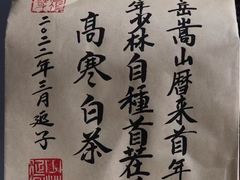 岳嵩山曆来首年
年少林自種首茬
高寒白茶
二〇二二年三月延子